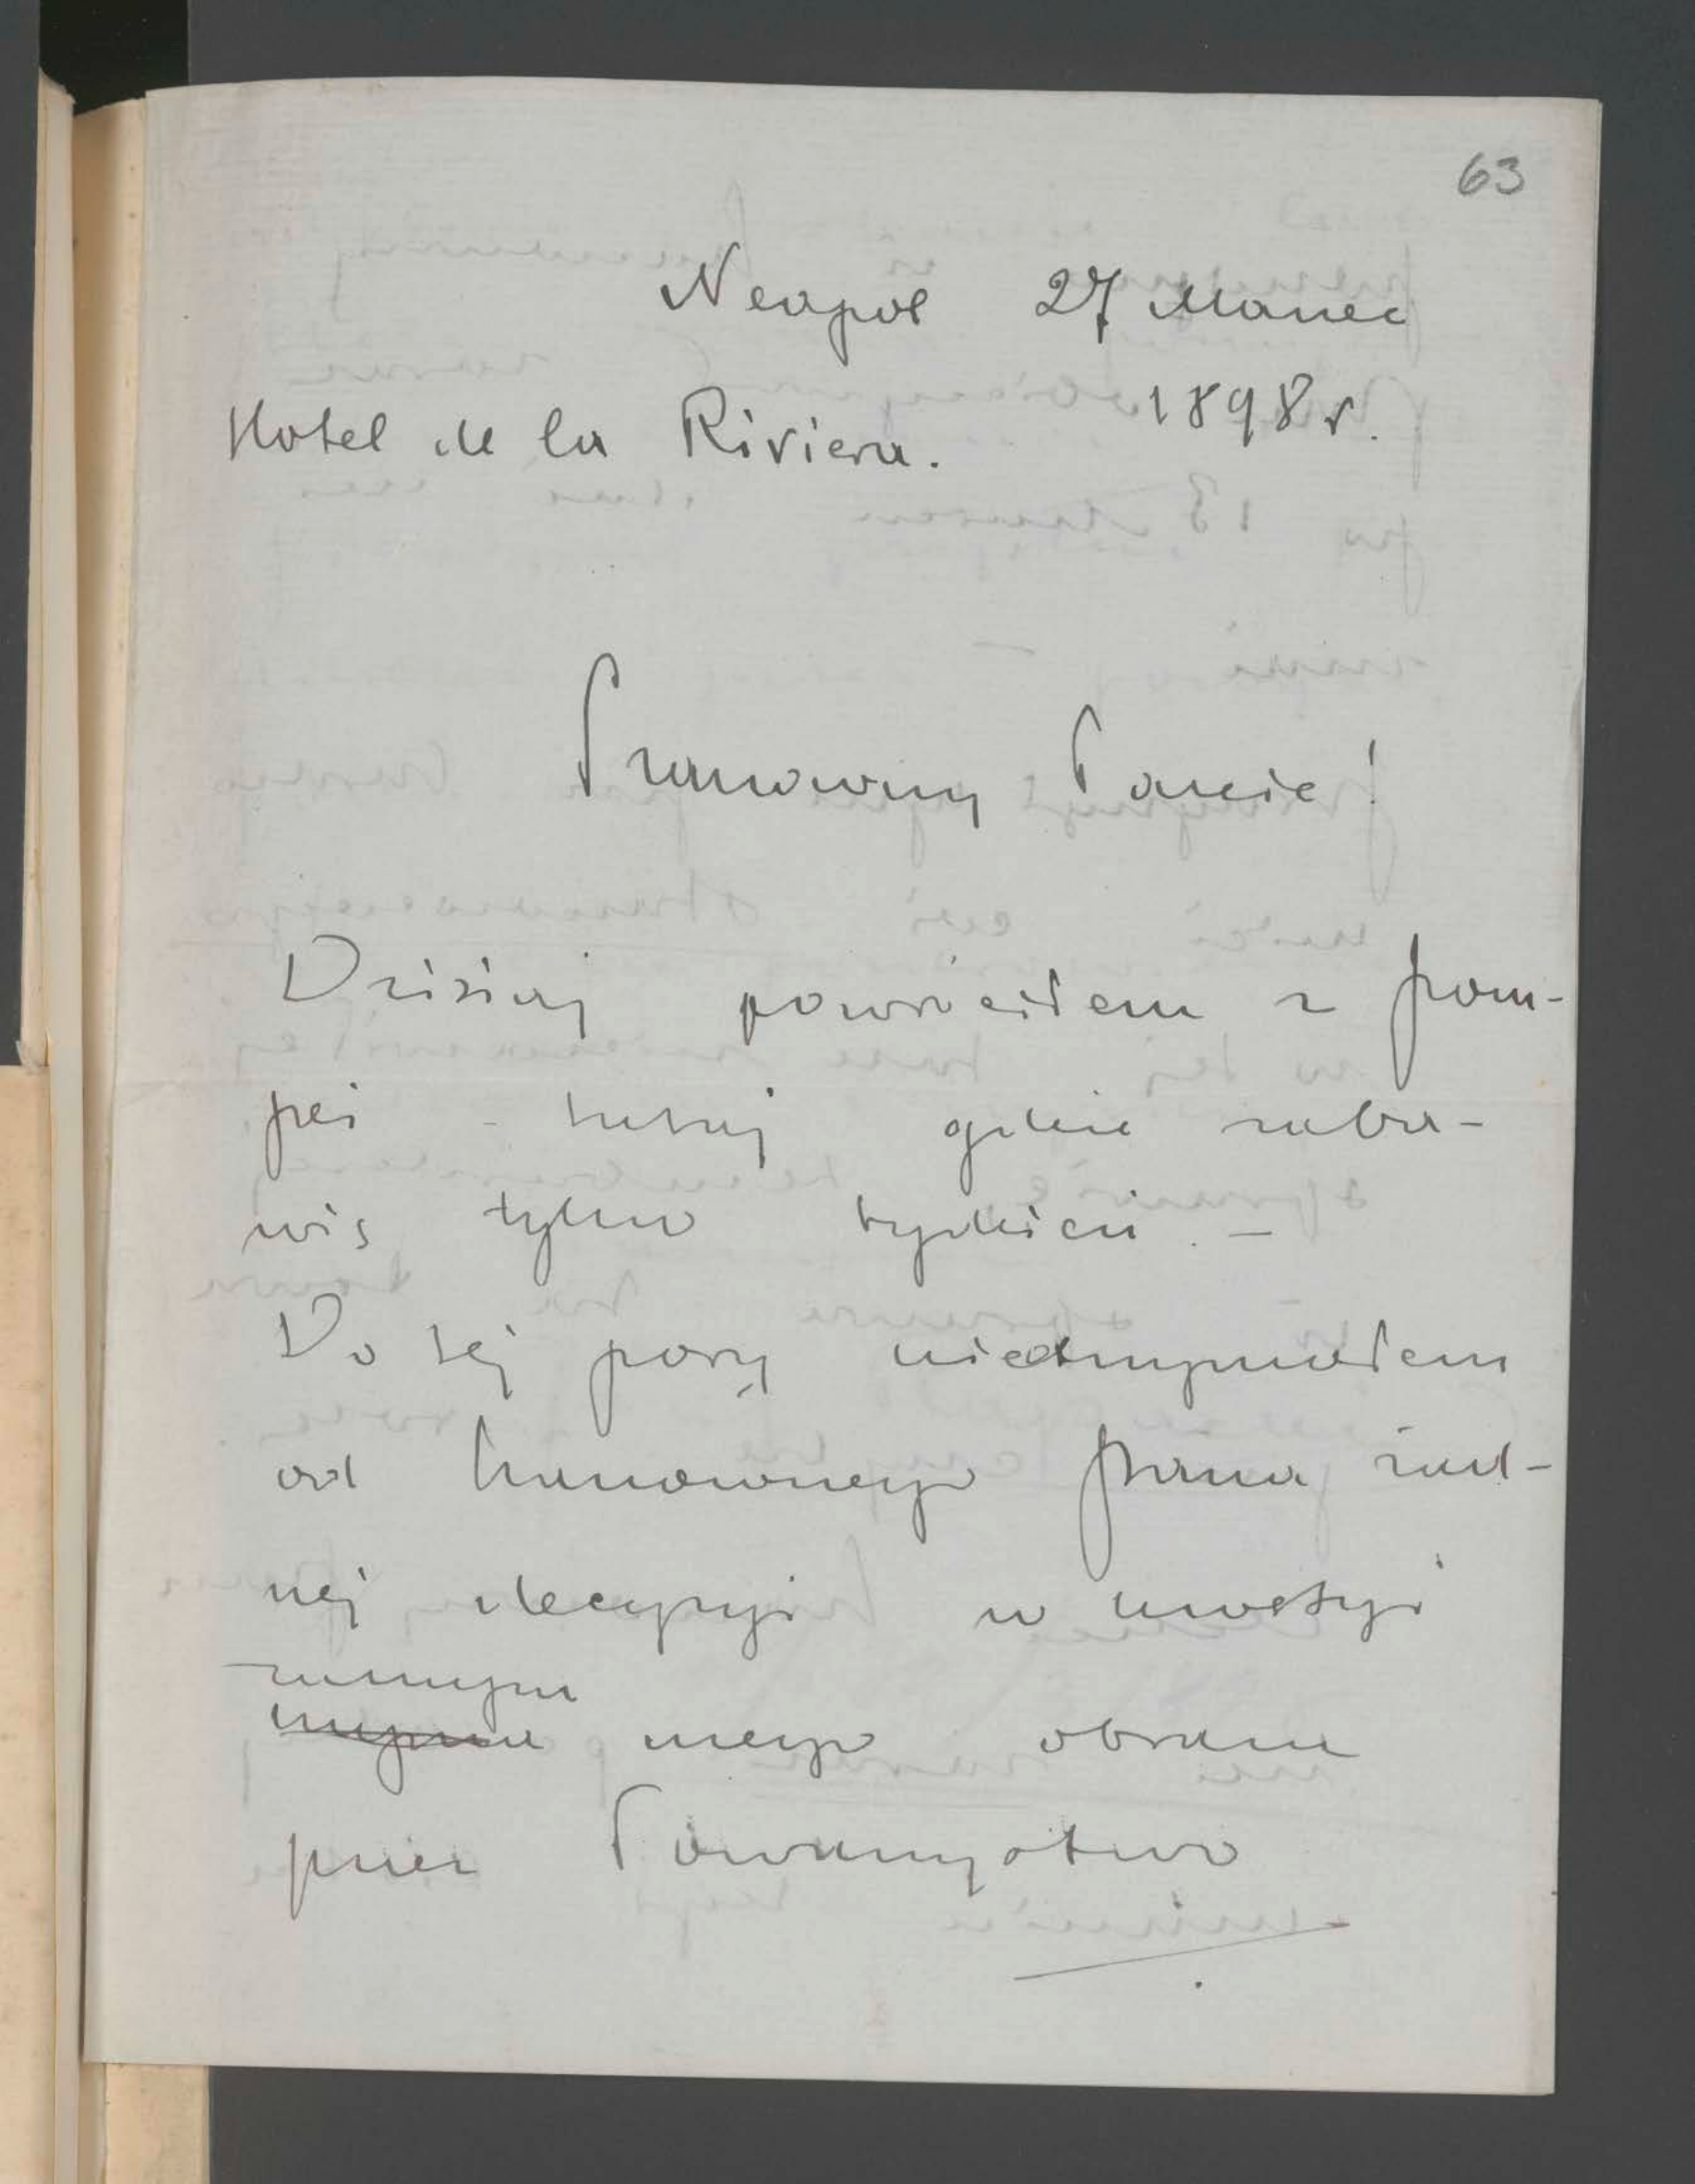 63
Neapol 27 Marzec
1898 r.
Hotel de la Riviera.
Szanowny Panie!
Dzisiaj powróciłem z Pom-
pei - tutaj gdzie zaba-
wię tylko tydzień. -
Do tej pory nieotrzymałem
od Szanownego Pana żad-
nej decyzyi w kwestyi
zakupu
kupna mego obrazu
przez Towarzystwo